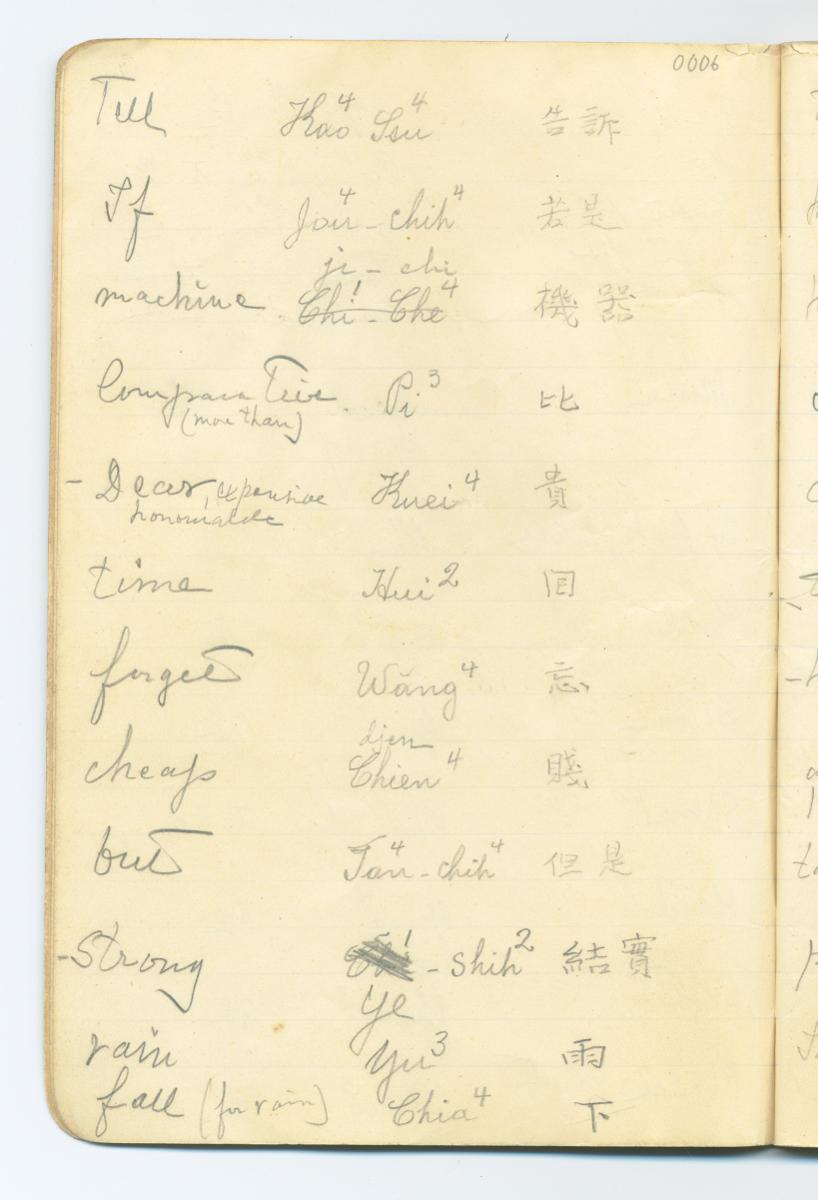 0006
Tell Kao⁴ Ssu⁴ 告訴
If Jou⁴ - chih⁴ 若是
ji - chi
machine Chi¹ - Che⁴ 機器
Comparative Pi³ 比
(more than)
- Dear, expensive Kuei⁴ 貴
time Hui² 回
forget Wăng⁴ 忘
djen
cheap Chien⁴ 賤
but Tan⁴ - chih⁴ 但是
- Strong - Shih² 結實
Ye
rain Yu³ 雨
fall (for rain) Chia⁴ 下